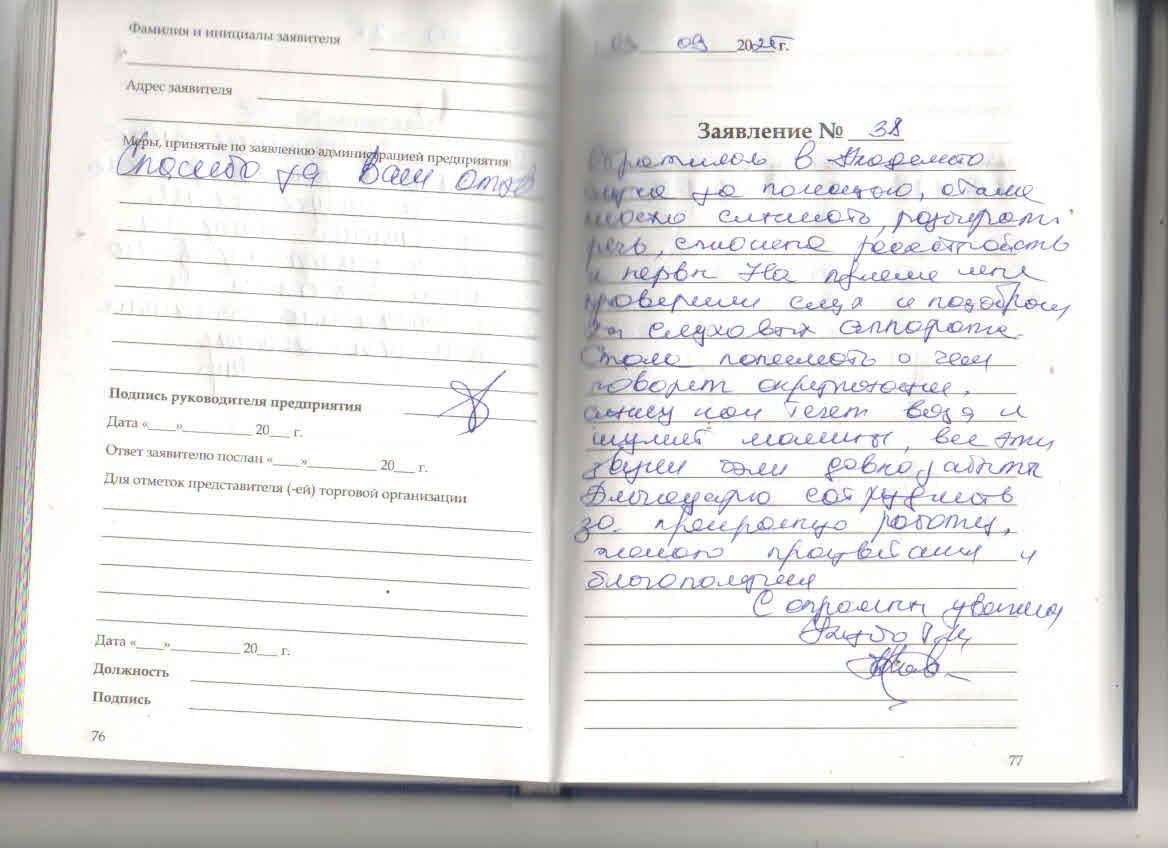 Фамилия и инициалы заявителя
Адрес заявителя
Меры, принятые по заявлению администрацией предприятия
Спасибо за Ваш отзыв
Подпись руководителя предприятия
Дата «____»__________ 20___ г.
Ответ заявителю послан «____»__________ 20___ г.
Для отметок представителя (-ей) торговой организации
Дата «____»__________ 20___ г.
Должность
Подпись
76
03 09 2025 г.
Заявление № 38
Обратилась в Академию
слуха за помощью, стала
плохо слышать, разбирать
речь,
и нервы На приеме мне
проверили слух и подобрали
2а слуховых аппарата.
Стала понимать о чем
говорят окружающие,
слышу как течет вода и
шумят машины, все эти
звуки были давно забыты
Благодарю
за прекрасную работу,
желаю процветания и
благополучия
С огромным уважением
77